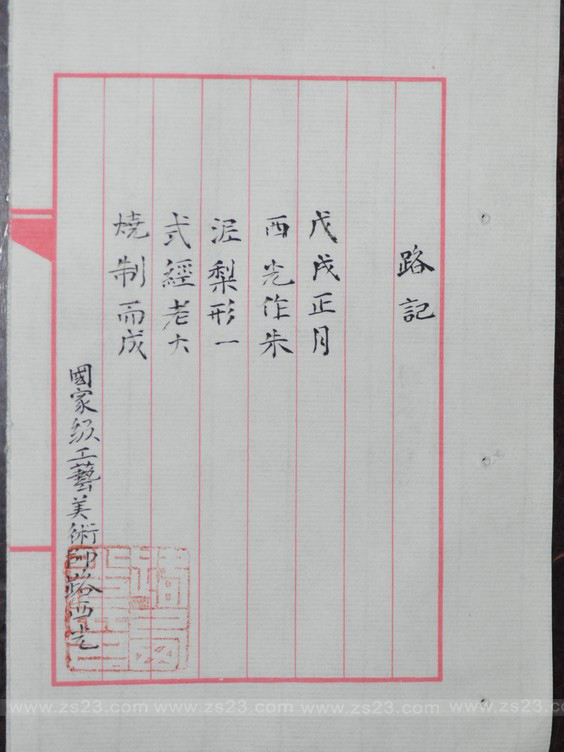 路記
戊戌正月
西光作朱
泥梨形一
式經老大
燒制而成
國家級工藝美術師路西光
www.zs23.com www.zs23.com www.zs23.com www.zs23.com